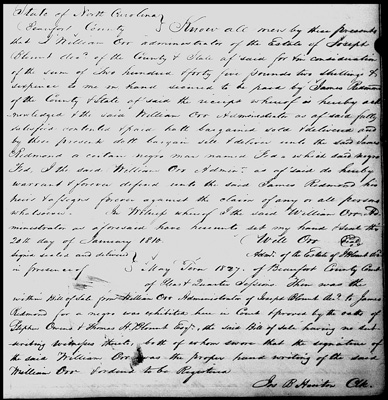 State of North Carolina
Beaufort County } Know all men by these presents
that I William Orr administrator of the Estate of Joseph
Blount decd of the County & State af said for & in consideration
of the sum of two hundred forty five pounds two shillings &
sixpence to me in hand secured to be paid by James Redmond
of the County & State af said the receipt whereof is hereby ack
nowledged I the said William Orr Administrator as af said fully
satisfied contented & paid hath bargained sold & delivered and
by these presents doth bargain sell & deliver unto the said James
Redmond a certain negro man named Fed & which said negro
Fed, I the said William Orr Admr. as af said do hereby
warrant & forever defend unto the said James Redmond his
heirs & assigns forever against the claim of any or all persons
whatsoever. In Witness whereof I the said William Orr Ad
ministrator as aforesaid have hereunto set my hand & seal this
20th day of January 1810.
Will Orr Seal
Admr. of the Estate of J Blount decd
signed sealed and delivered
in presence of } May Term 1827. of Beaufort County Court
of Pleas & Quarter Sessions Then was the
within Bill of Sale from William Orr Administrator of Joseph Blount decd to James
Redmond for a negro was exhibited here in Court & proved by the oaths of
Stephn Owens & Thomas H. Blount Esqrs. the said Bill of Sale having no sub
scribing witness thereto, both of whom swore that the signature of
the said William Orr was the proper hand writing of the said
William Orr & ordered to be Registered
Jno B Hinton Clk.